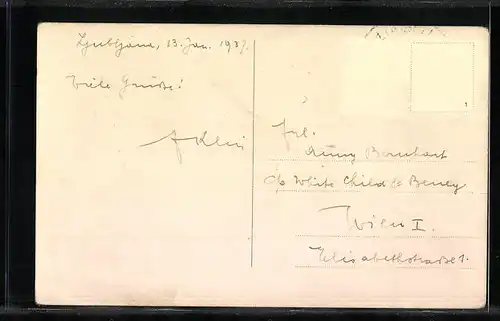 Ljubljana, 13. Jan. 1937.
Viele Grüße!
A Klein
Frl.
Bernhart
c/o White Child & Beney
Wien I.
Elisabethstrasse 1.